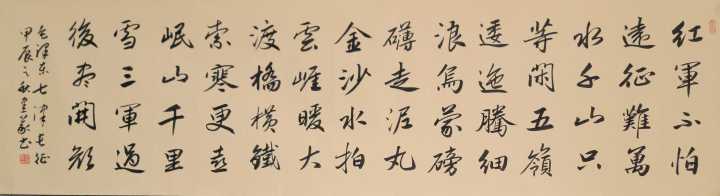 紅軍不怕
遠征難萬
水千山只
等閑五嶺
逶迤騰細
浪烏蒙磅
礴走泥丸
金沙水拍
雲崖暖大
渡橋横鐵
索寒更喜
岷山千里
雪三軍過
後盡開顔
毛澤東七律長征
甲辰之秋書